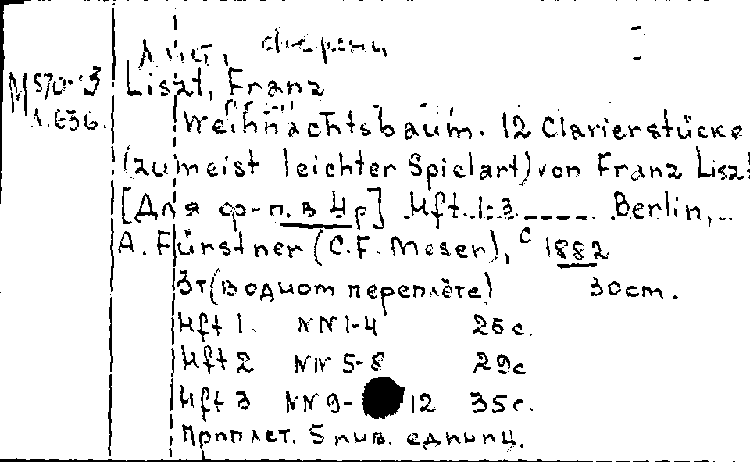 Лист, Ференц
M 570-3 Liszt, Franz
Л.636. Weihnachtsbaum. 12 Clavierstücke
(zumeist leichter Spielart) von Franz Liszt
[Для ф-п. в 4 р] Hft. 1-3 ----- Berlin,
A. Fürstner (C.F. Meser), c 1882
3т (в одном переплёте) 30cm.
Hft 1. NN 1-4 25 с.
Hft 2 NN 5-8 29с
Hft 3 NN 9-12 35с.
Приплет. 5 единиц.